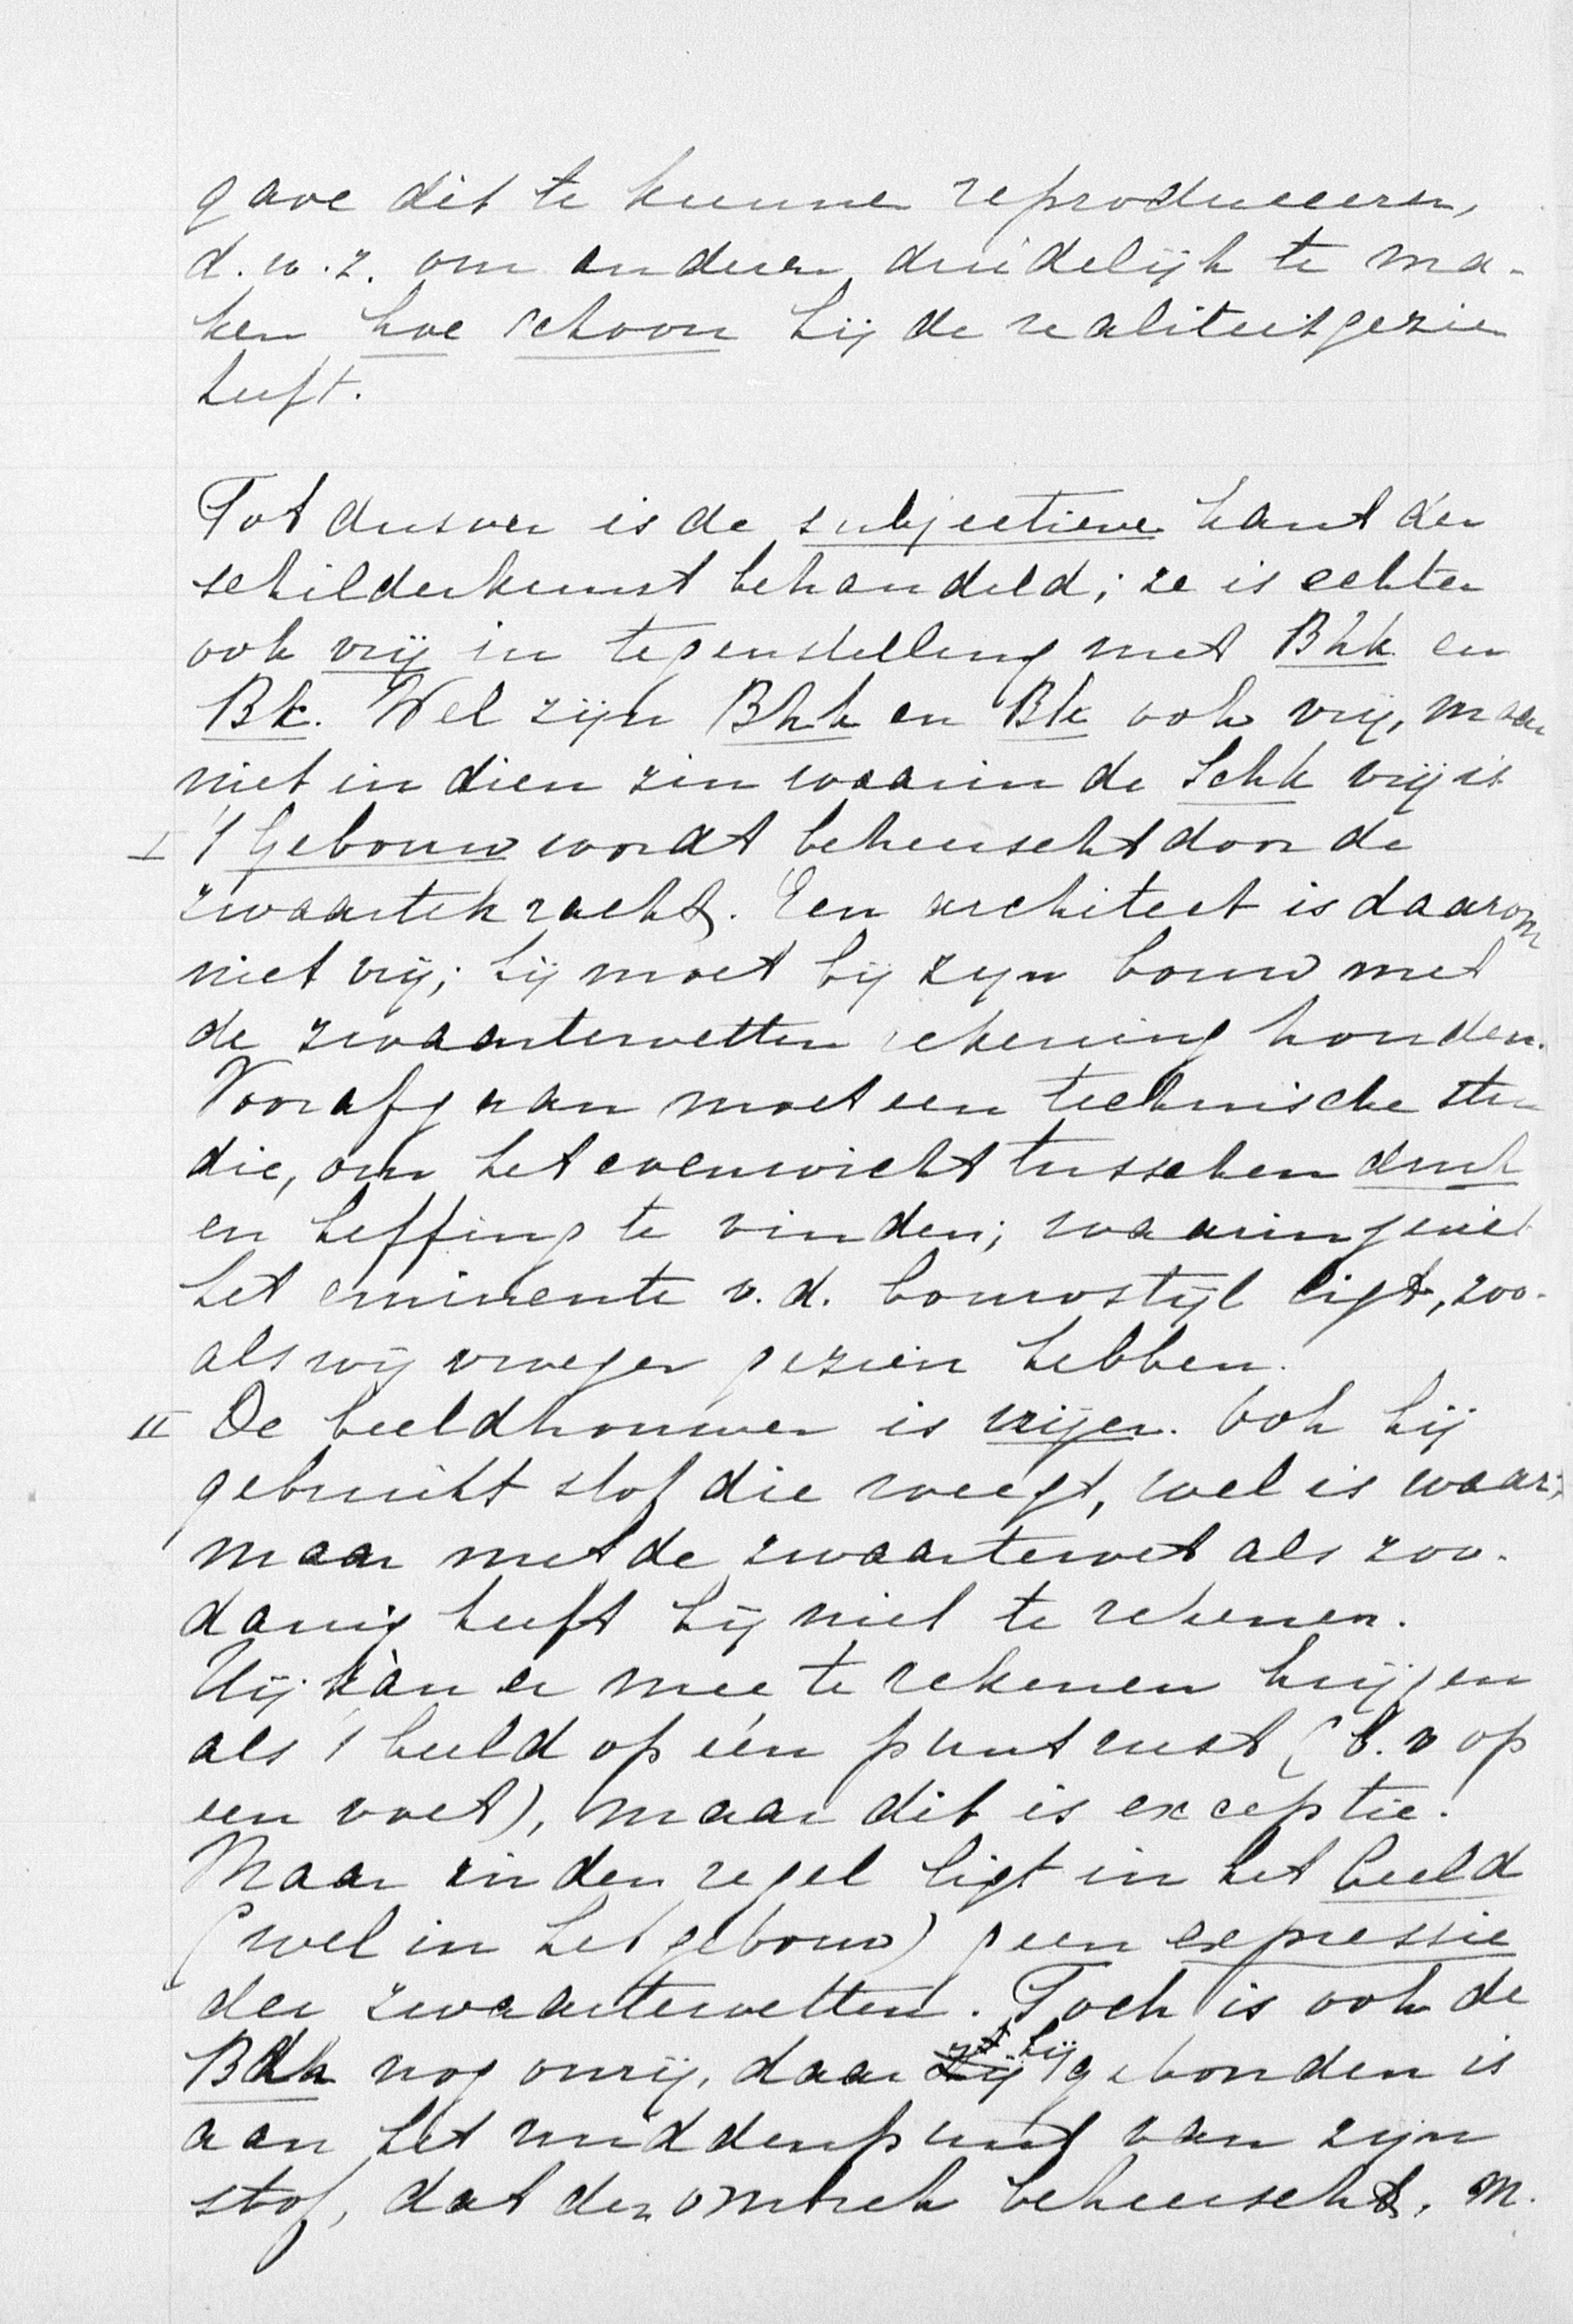 gave dit te kunnen reproduceeren,
d.w.z. om anderen duidelijk te ma-
ken hoe schoon hij de realiteit gezien
heeft.
Tot dusver is de subjectieve kant der
schilderkunst behandeld; ze is echter
ook vrij in tegenstelling met Bhk en
Bk. Wel zijn Bhk en Bk ook vrij, maar
niet in dien zin waarin de Schk vrij is
I 't Gebouw wordt beheerscht door de
zwaartekracht. Een architect is daarom
niet vrij; hij moet bij zijn bouw met
de zwaartewetten rekening houden.
Voorafgaan moet een technische stu-
die, om het evenwicht tusschen druk
en heffing te vinden; waarin juist
het eminente v.d. bouwstijl ligt, zoo-
als wij vroeger gezien hebben.
II De beeldhouwer is vrijer. Ook hij
gebruikt stof die weegt, wel is waar;
maar met de zwaartewet als zoo-
danig heeft hij niet te rekenen.
Hij kàn er mee te rekenen krijgen
als 't beeld op één punt rust (b.v op
een voet), maar dit is exceptie.
Maar in den regel ligt in het beeld
(wel in het gebouw) geen expressie
der zwaartewetten. Toch is ook de
Bdh nog onvrij, daar hij gebonden is
aan het middenpunt van zijn
stof, dat den omtrek beheerscht. M.